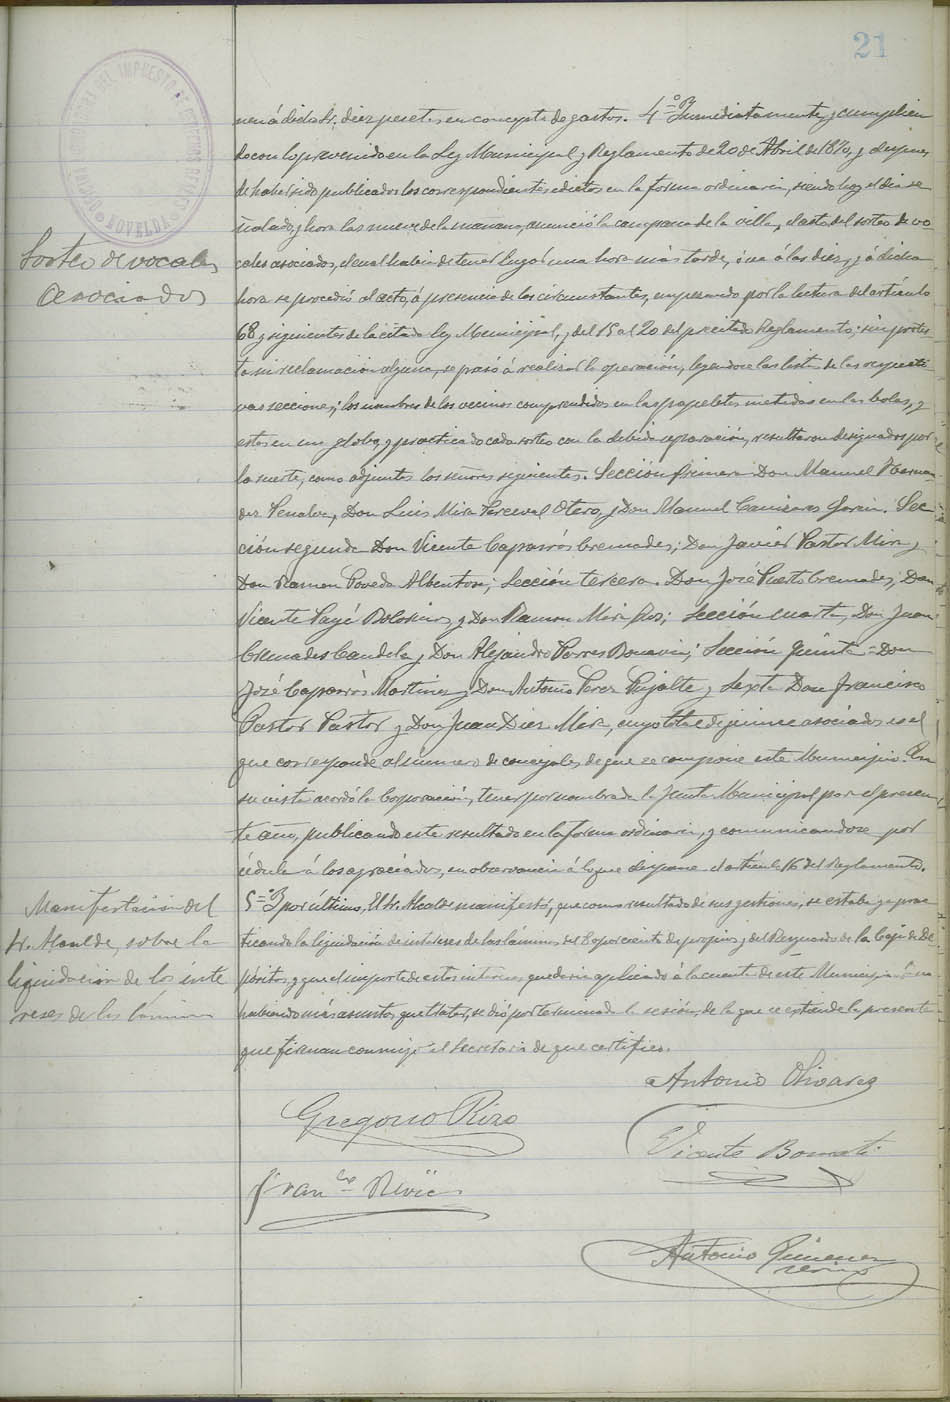 21
nen á dicho Sr. diez pesetas en concepto de gastos. 4º Inmediatamente y cumplien
do con lo prevenido en la Ley Municipal y Reglamento de 20 de Abril de 1870, y despues
de haber sido publicados los correspondientes edictos en la forma ordinaria, siendo hoy el dia se
ñalado, y hora las nueve de la mañana, anunció la campana de la villa, el acto del sorteo de vo
Sorteo de vocales
asociados
cales asociados, el cual habia de tener lugar una hora más tarde, á las diez, y á dicha
hora se procedió al acto, á presencia de los circunstantes, empezando por la lectura del artículo
68 y siguientes de la citada ley Municipal, y del 15 al 20 del precitado Reglamento; sin protes
ta ni reclamacion alguna, se pasó á realizar la operacion, leyendose las listas de las respecti
vas secciones; los nombres de los vecinos comprendidos en las papeletas metidas en las bolas, y
estas en un globo, y practicado cada sorteo con la debida separacion, resultaron designados por
la suerte, como adjuntos los señores siguientes. Sección primera Don Manuel Hernan
dez Penalva, Don Luis Mira Perceval Otero, y Don Manuel Cañizares Jorin. Sec
ción segunda Don Vicente Caparrós Cremades; Don Javier Pastor Mira y
Don Ramon Poveda Albentosa; Sección tercera. Don José Puerto Cremades; Don
Vicente Payá y Don Ramon Mira; Sección cuarta, Don Juan
Cremades Candela y Don Alejandro Torres; Sección Quinta = Don
José Caparrós Martinez y Don Antonio Perez Pujalte, y Sexta Don Francisco
Pastor Pastor y Don Juan Diez Mira, cuyo total de quince asociados es el
que corresponde al número de concejales de que se compone este Municipio. En
su vista acordó la Corporación, tener por nombrada la Junta Municipal para el presen
te año, publicando este resultado en la forma ordinaria, y comunicandose por
cédula á los agraciados, en observancia á lo que dispone el artículo 16 del Reglamento.
Manifestacion del
Sr. Alcalde, sobre la
liquidacion de los inte
reses de las láminas
5º Y por último, El Sr. Alcalde manifestó, que como resultado de sus gestiones, se estaba ya prac
ticando la liquidación de intereses de las láminas del 80 por ciento de propios y del Resguardo de la Caja de De
pósitos, y que el importe de estos intereses quedaria aplicado á la cuenta de este Municipio. Y no
habiendo más asuntos que tratar, se dió por terminada la sesión, de la que se extiende la presente
que firman conmigo el Secretario de que certifico.
Antonio Olivares
Gregorio Rizo
Vicente Bomati
Antonio Gimenez